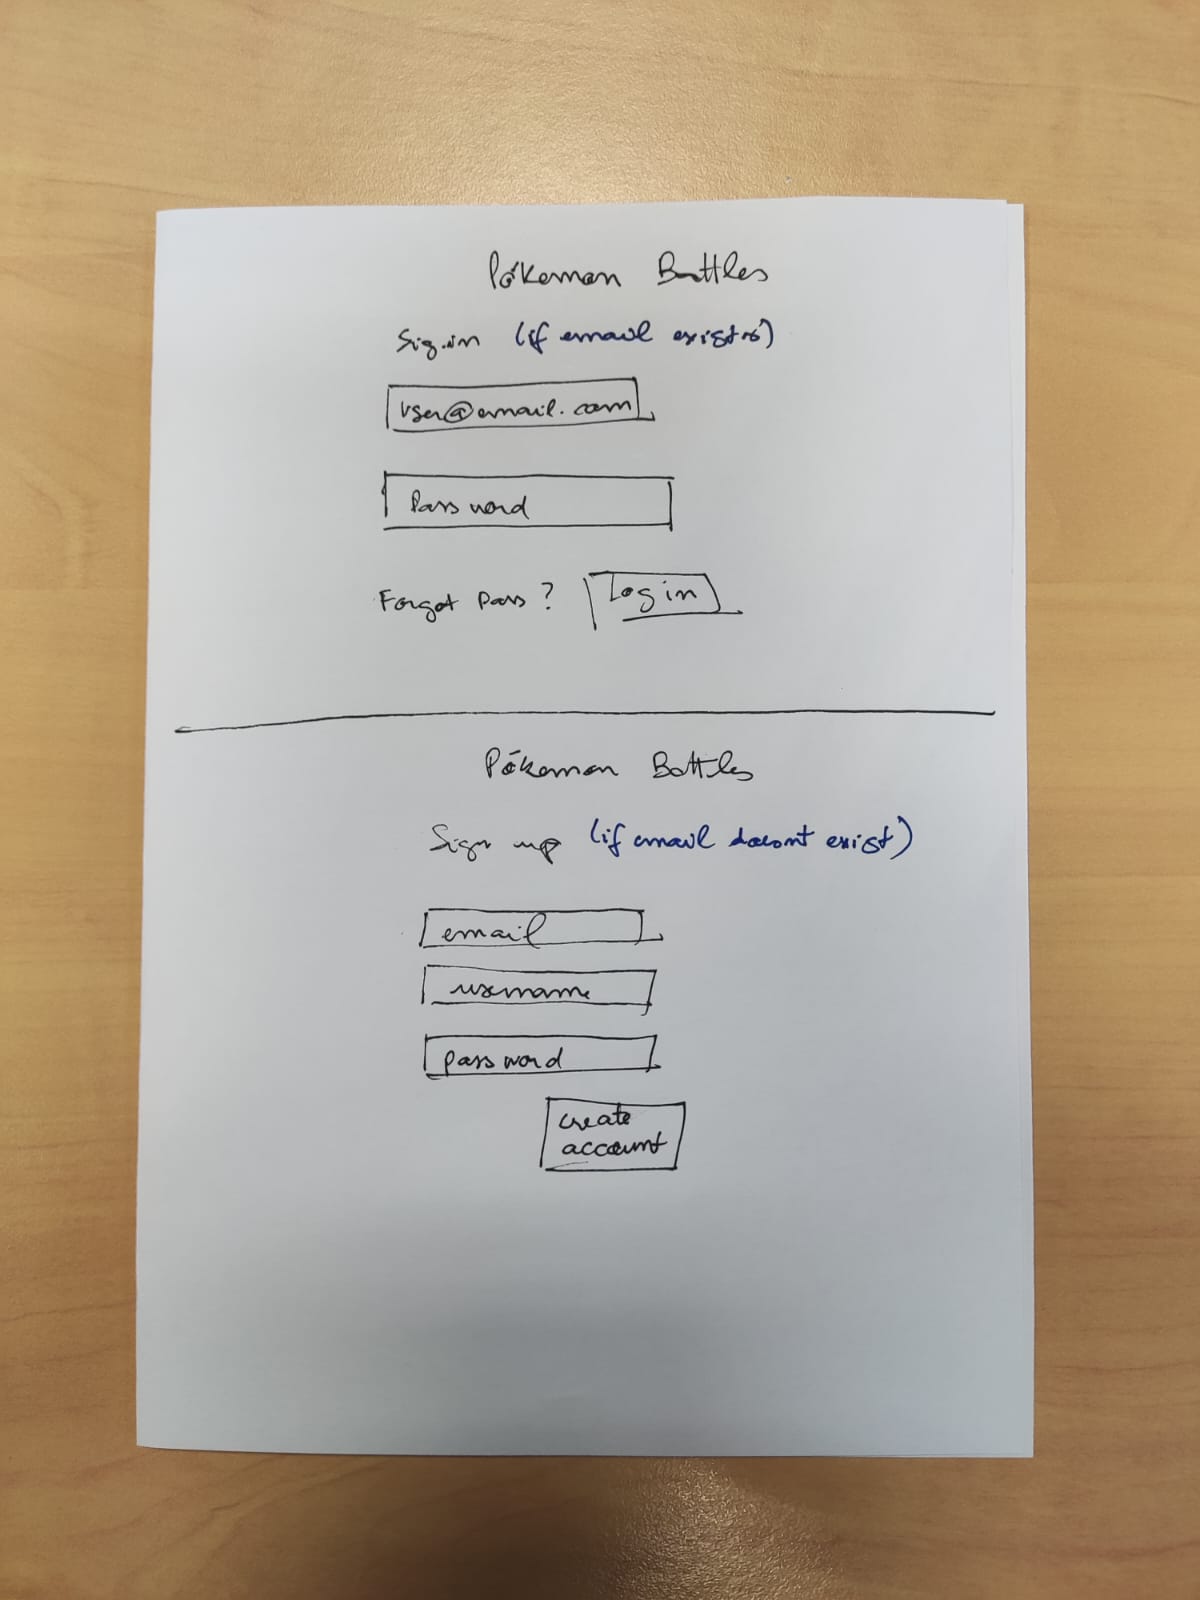 Pókemon Battles
Sign in (if email exists)
user@email.com
Password
Forgot pass? Log in
Pókemon Battles
Sign up (if email doesnt exist)
email
username
password
create
account